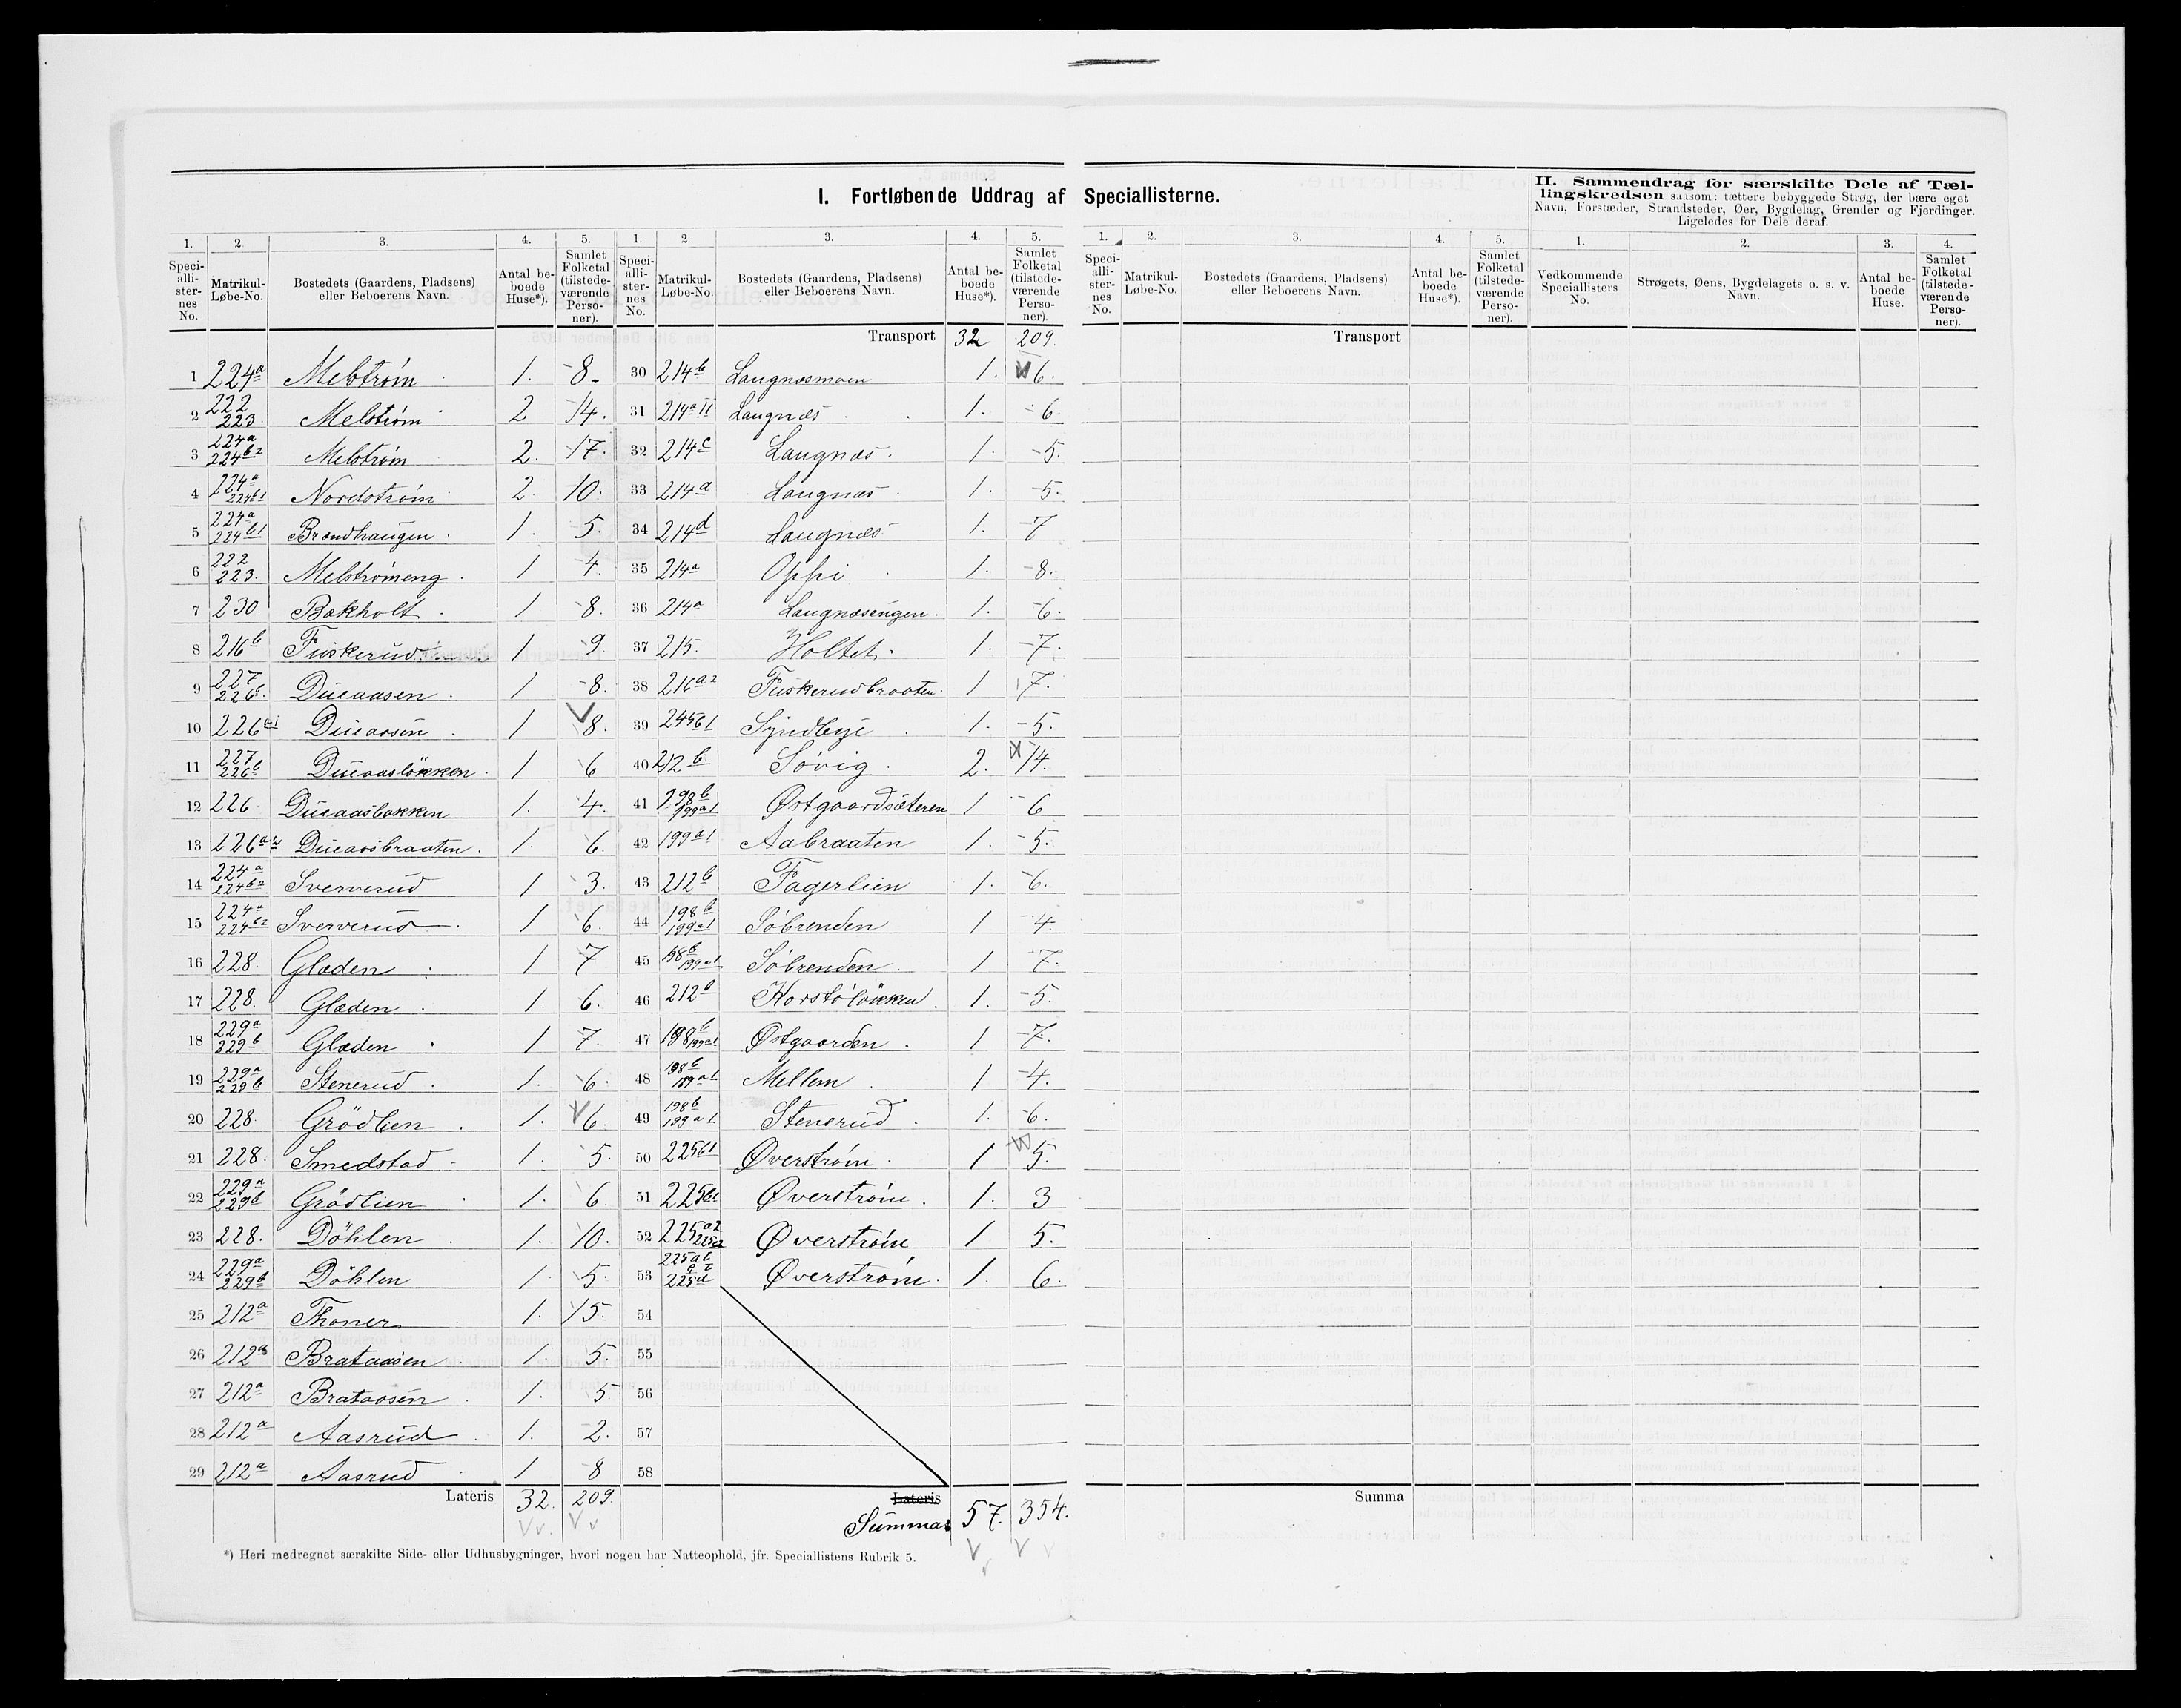 I. Fortløbende Uddrag af Speciallisterne.
II. Sammendrag for særskilte Dele af Tællingskredsen saasom: tættere bebyggede Strøg, der bære eget
Navn, Forstæder, Strandsteder, Øer, Bygdelag, Grender og Fjerdinger.
Ligeledes for Dele deraf.
1. 2 3. 4. 5. 1. 2. 3. 4. 5. 1. 2. 3. 4. 5. 1. 2. 3. 4.
Speciallisternes No. Matrikul-Løbe-No. Bostedets (Gaardens, Pladsens) eller Beboerens Navn. Antal beboede Huse*). Samlet Folketal (tilstedeværende Personer).
Speciallisternes No. Matrikul-Løbe-No. Bostedets (Gaardens, Pladsens) eller Beboerens Navn. Antal beboede Huse*). Samlet Folketal (tilstedeværende Personer).
Speciallisternes No. Matrikul-Løbe-No. Bostedets (Gaardens, Pladsens) eller Beboerens Navn. Antal beboede Huse*). Samlet Folketal (tilstedeværende Personer).
Vedkommende Speciallisters No. Strøgets, Øens, Bygdelagets o. s. v. Navn. Antal beboede Huse. Samlet Folketal (tilstedeværende Personer).
1 224a Melstrøm 1. 8.
2 222 223. Melstrøm 2 14.
3 224a 224b2 Melstrøm 2. 17.
4 224a 224b1 Nordstrøm 2. 10.
5 224a 224b1 Brændhaugen 1. 5.
6 222 223. Melstrømeng 1 4.
7 230. Bakholt 1 8.
8 216b Fuskerud 1 9.
9 227 226b. Dueaasen 1 8.
10 226a1 Dueaasen 1 8.
11 227 226b Dueaasløkken 1 6
12 226 Dueaasbakken 1. 4.
13 226a2 Dueaasbraaten 1. 6.
14 224a 224b2 Sververud 1 3.
15 224a 224b2 Sververud 1 6.
16 228. Glæden 1 7
17 228. Glæden 1. 6.
18 229a 229b Glæden 1 7.
19 229a 229b Stenerud 1. 6.
20 228. Grödlien 1. 6.
21 228. Smedstad 1. 5.
22 229a 229b Grödlien 1. 6.
23 228. Döhlen 1. 10.
24 229a 229b Döhlen 1. 5.
25 212a Thoner 1. 15.
26 212a Brataasen 1. 5.
27 212a Brataasen 1. 5
28 212a Aasrud 1. 2.
29 212a Aasrud 1 8
Lateris 32. 209.
Transport 32 209.
30 214b Langnæsmoen 1. 6.
31 214a II Langnæs 1. 6.
32 214c Langnæs. 1. 5.
33 214a Langnæs 1. 5.
34 214d Langnæs 1. 7
35 214a Oppi 1. 8.
36 214a Langnæsengen. 1. 6.
37 215. Holtet. 1. 7.
38 216a2 Fuskerudbraaten. 1 7.
39 245b1 Syndbye 1. 5.
40 212b Søvig. 2. 14.
41 198b 199a1 Østgaardsæteren 1 6
42 199a1 Aabraaten 1. 5.
43 212b Fagerlien 1. 6.
44 198b 199a1 Søbrenden 1 4.
45 198b 199a1 Søbrenden 1 7.
46 212b Korstøløkken. 1. 5.
47 198b 199a1 Østgaarden. 1 7.
48 198b 199a1 Mellem 1 4.
49 198b 199a1 Stenerud 1. 6.
50 225b1 Øverstrøm. 1 5.
51 225b1 Øverstrøm. 1. 3
52 225a2 Øverstrøm 1 5.
53 Øverstrøm. 1. 6.
54
55
56
57
58
Lateris
Summa 57. 354.
Transport
Summa
*) Heri medregnet særskilte Side- eller Udhusbygninger, hvori nogen har Natteophold, jfr. Speciallistens Rubrik 5.